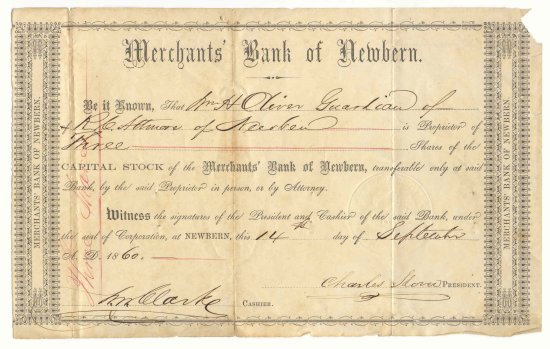 Merchants' Bank of Newbern.
Be it Known, That Wm H Oliver Guardian of
R. of Newbern is Proprietor of
Three Shares of the
CAPITAL STOCK of the Merchants' Bank of Newbern, transferable only at said
Bank, by the said Proprietor in person, or by Attorney.
Witness the signatures of the President and Cashier of the said Bank, under
the seal of Corporation, at NEWBERN, this 14th day of September
A. D. 1860.
Charles Slover PRESIDENT.
Clarke CASHIER.
MERCHANTS' BANK OF NEWBERN.
MERCHANTS' BANK OF NEWBERN.